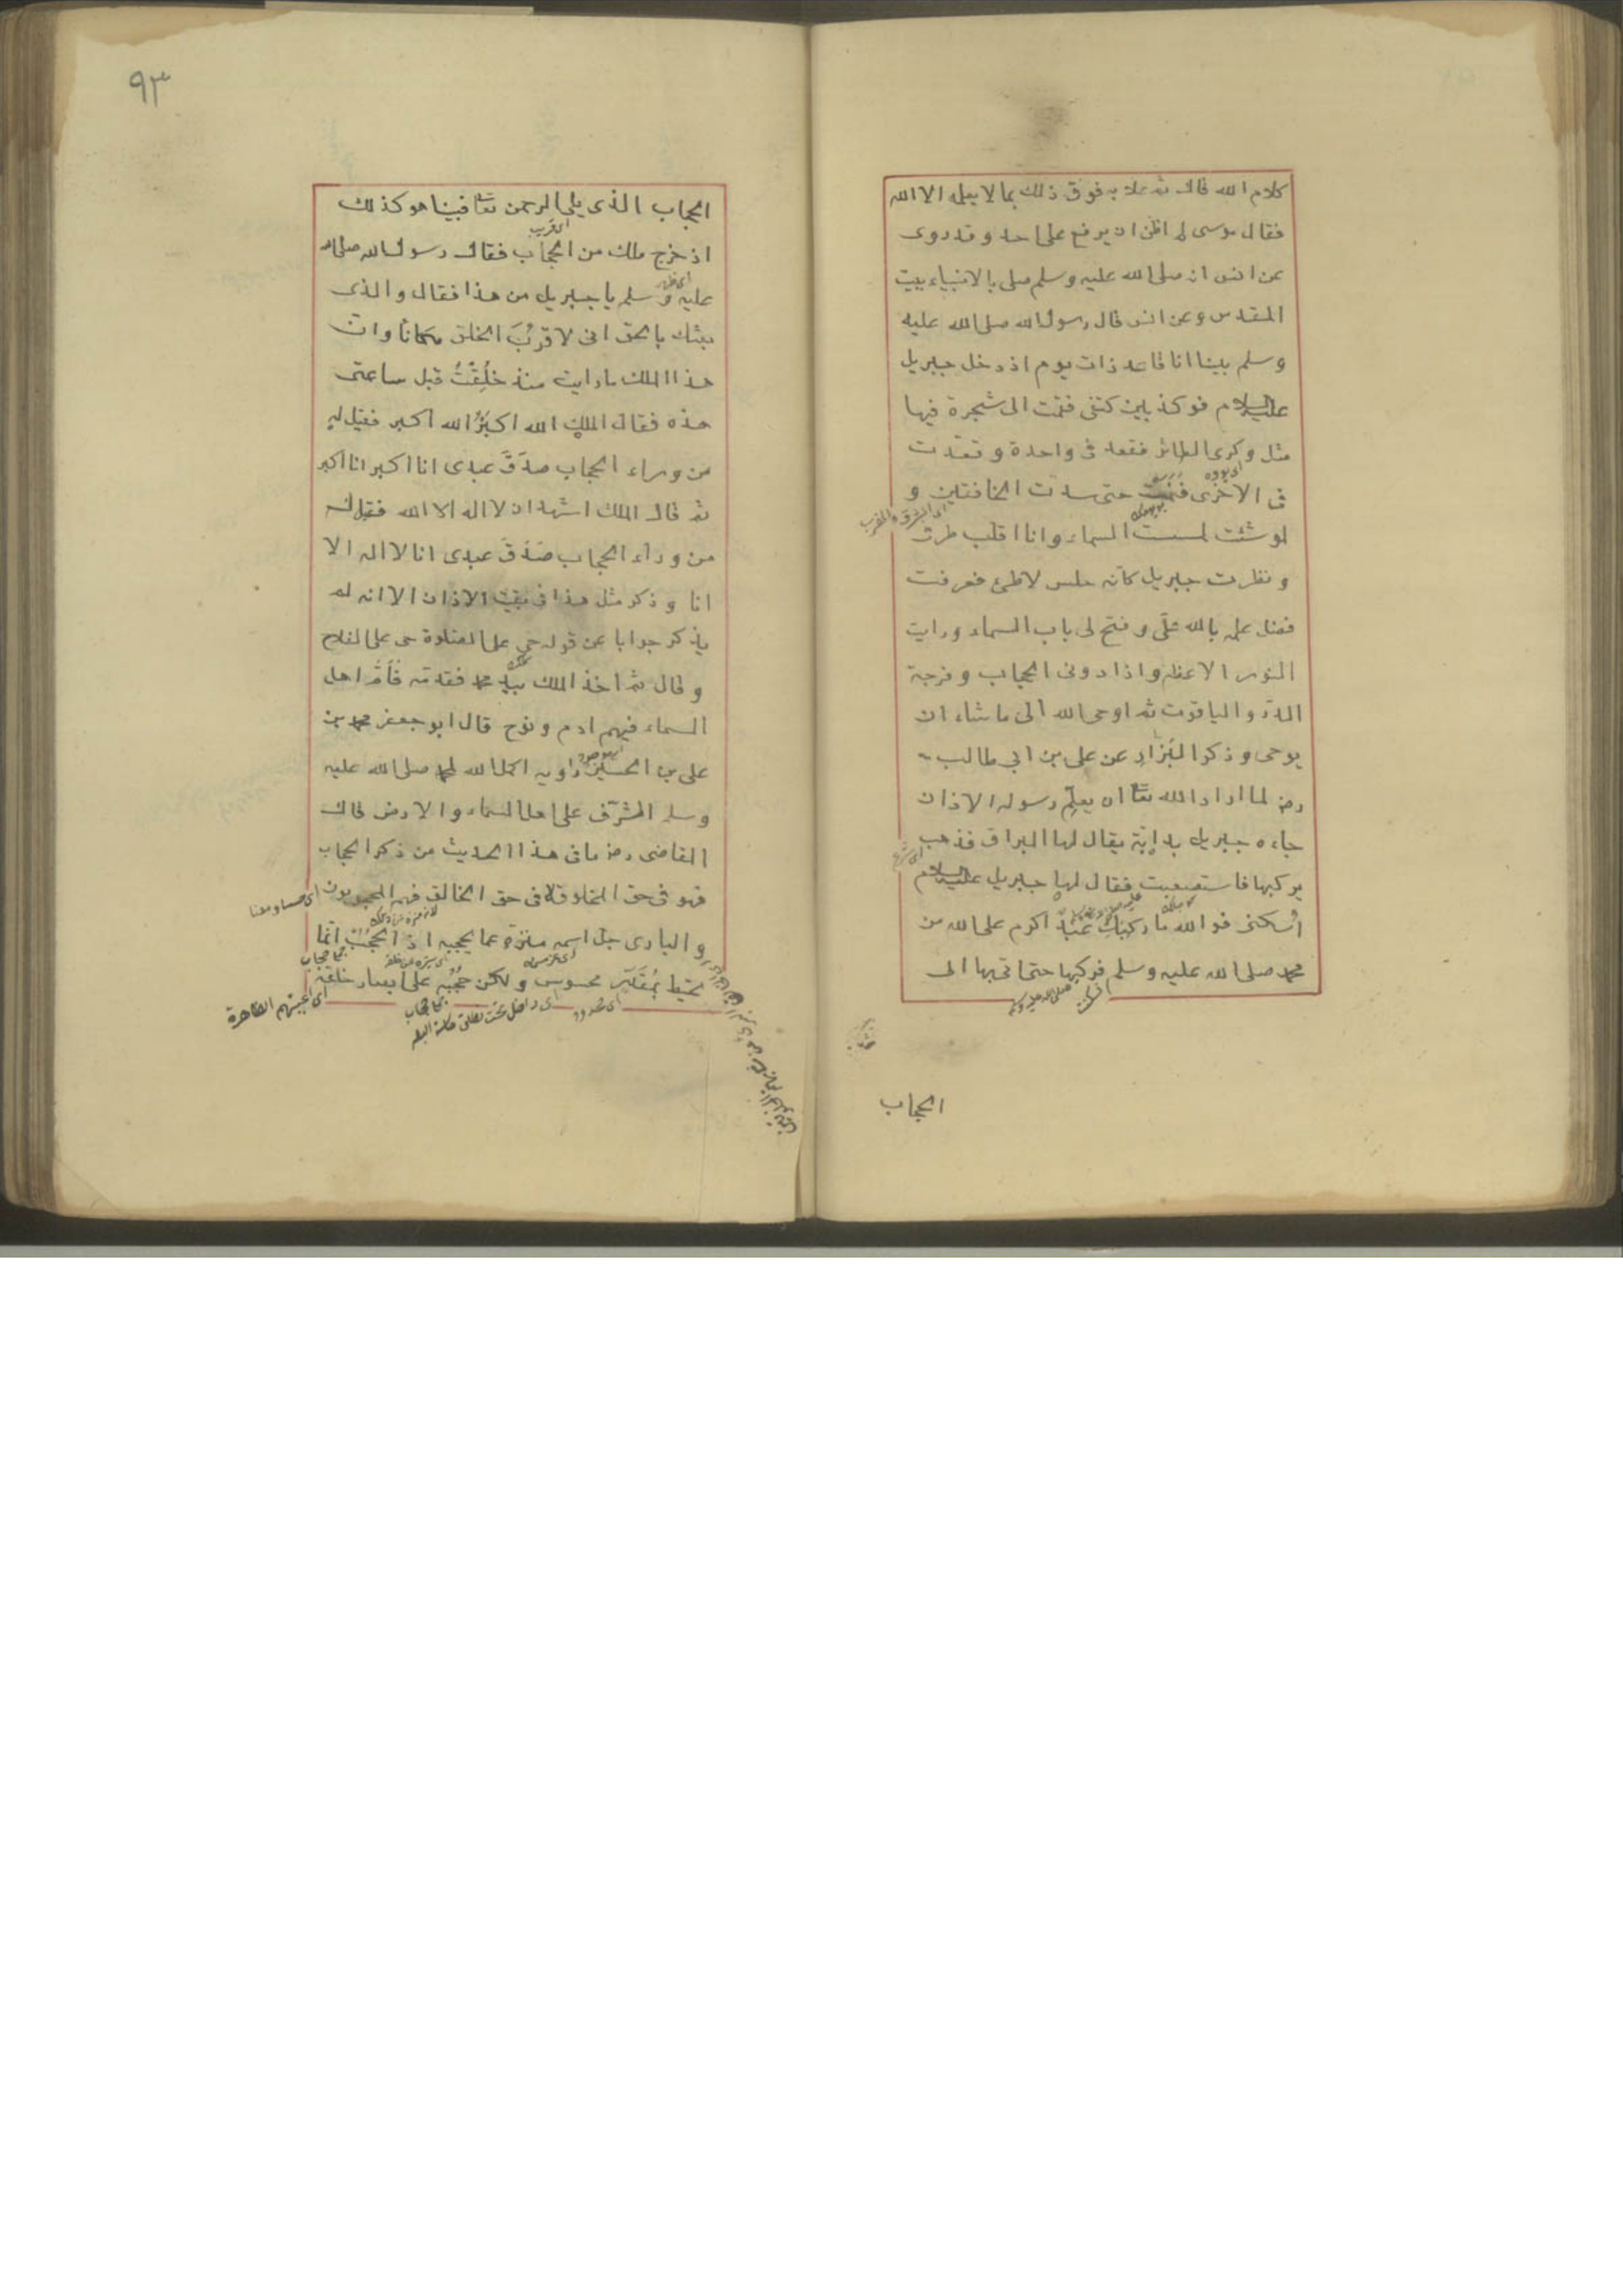 كلام الله قال ثم علا به فوق ذلك بما لا يعلمه الا الله
فقال موسى لم اظن ان يرفع على احد وقد روى
عن انس انه صلى الله عليه وسلم صلى بالانبياء ببيت
المقدس وعن انس قال رسول الله صلى الله عليه
وسلم بينا انا قاعد ذات يوم اذ دخل جبريل
عليه السلام فوكذ بين كتفى فقمت الى شجرة فيها
مثل وكرى الطائر فقعد فى واحدة وقعدت
فى الاخرى فنمت حتى سدت الخافقين و
اى المشرق والمغرب
لو شئت لمسست السماء وانا اقلب طرفى
ونظرت جبريل كانه حلس لاطئ فعرفت
فضل علمه بالله علىّ وفتح لى باب السماء ورايت
النور الاعظم واذا دونى الحجاب وفرجة
الدّر والياقوت ثم اوحى الله الى ما شاء ان
يوحى وذكر البَزار عن على بن ابى طالب
رضـ لما اراد الله تعا ان يعلّم رسوله الاذان
جاءه جبريل بدابّة يقال لها البراق فذهب
يركبها فاستصعبت فقال لها جبريل عليه السلام
اُسكنى فو الله ما ركبكِ عَبْدٌ اكرم على الله من
محمد صلى الله عليه وسلم فركبها حتى اتى بها الى
الحجاب
٩٣
الحجاب الذى يلى الرحمن تعا فبينا هو كذلك
اى قرب
اذ خرج ملك من الحجاب فقال رسول الله صلى الله
عليه وسلم يا جبريل من هذا فقال والذى
بعثك بالحق انى لاقربُ الخلق مكانا وان
هذا الملك ما رايته منذ خُلِقْتُ قبل ساعتى
هذه فقال الملك الله اكبرُ الله اكبر فقيل له
من وراء الحجاب صدَقَ عبدى انا اكبر انا اكبر
ثم قال الملك اشهد ان لا اله الا الله فقيل له
من وراء الحجاب صَدَقَ عبدى انا لا اله الا
انا وذكر مثل هذا فى بقية الاذان الا انه لم
يذكر جوابا عن قوله حى على الصلوة حى على الفلاح
وقال ثم اخذ الملك بيد محمد فقدمه فَاَمَّ اهل
السماء فيهم ادم ونوح قال ابو جعفر محمد بن
على بن الحسين راويه اكمل الله لمحمد صلى الله عليه
وسلم الشرف على اهل السماء والارض قال
القاضى رضـ ما فى هذا الحديث من ذكر الحجاب
فهو فى حق المخلوق لا فى حق الخالق فهم المحجوبون
والبارى جلّ اسمه منزّه عما يحجبه اذ الحُجُبُ انّما
تحيط بمُقَدَّر محسوس ولكن حُجُبُه على ابصار خلقه
اى محدود
اى اعينهم الظاهرة